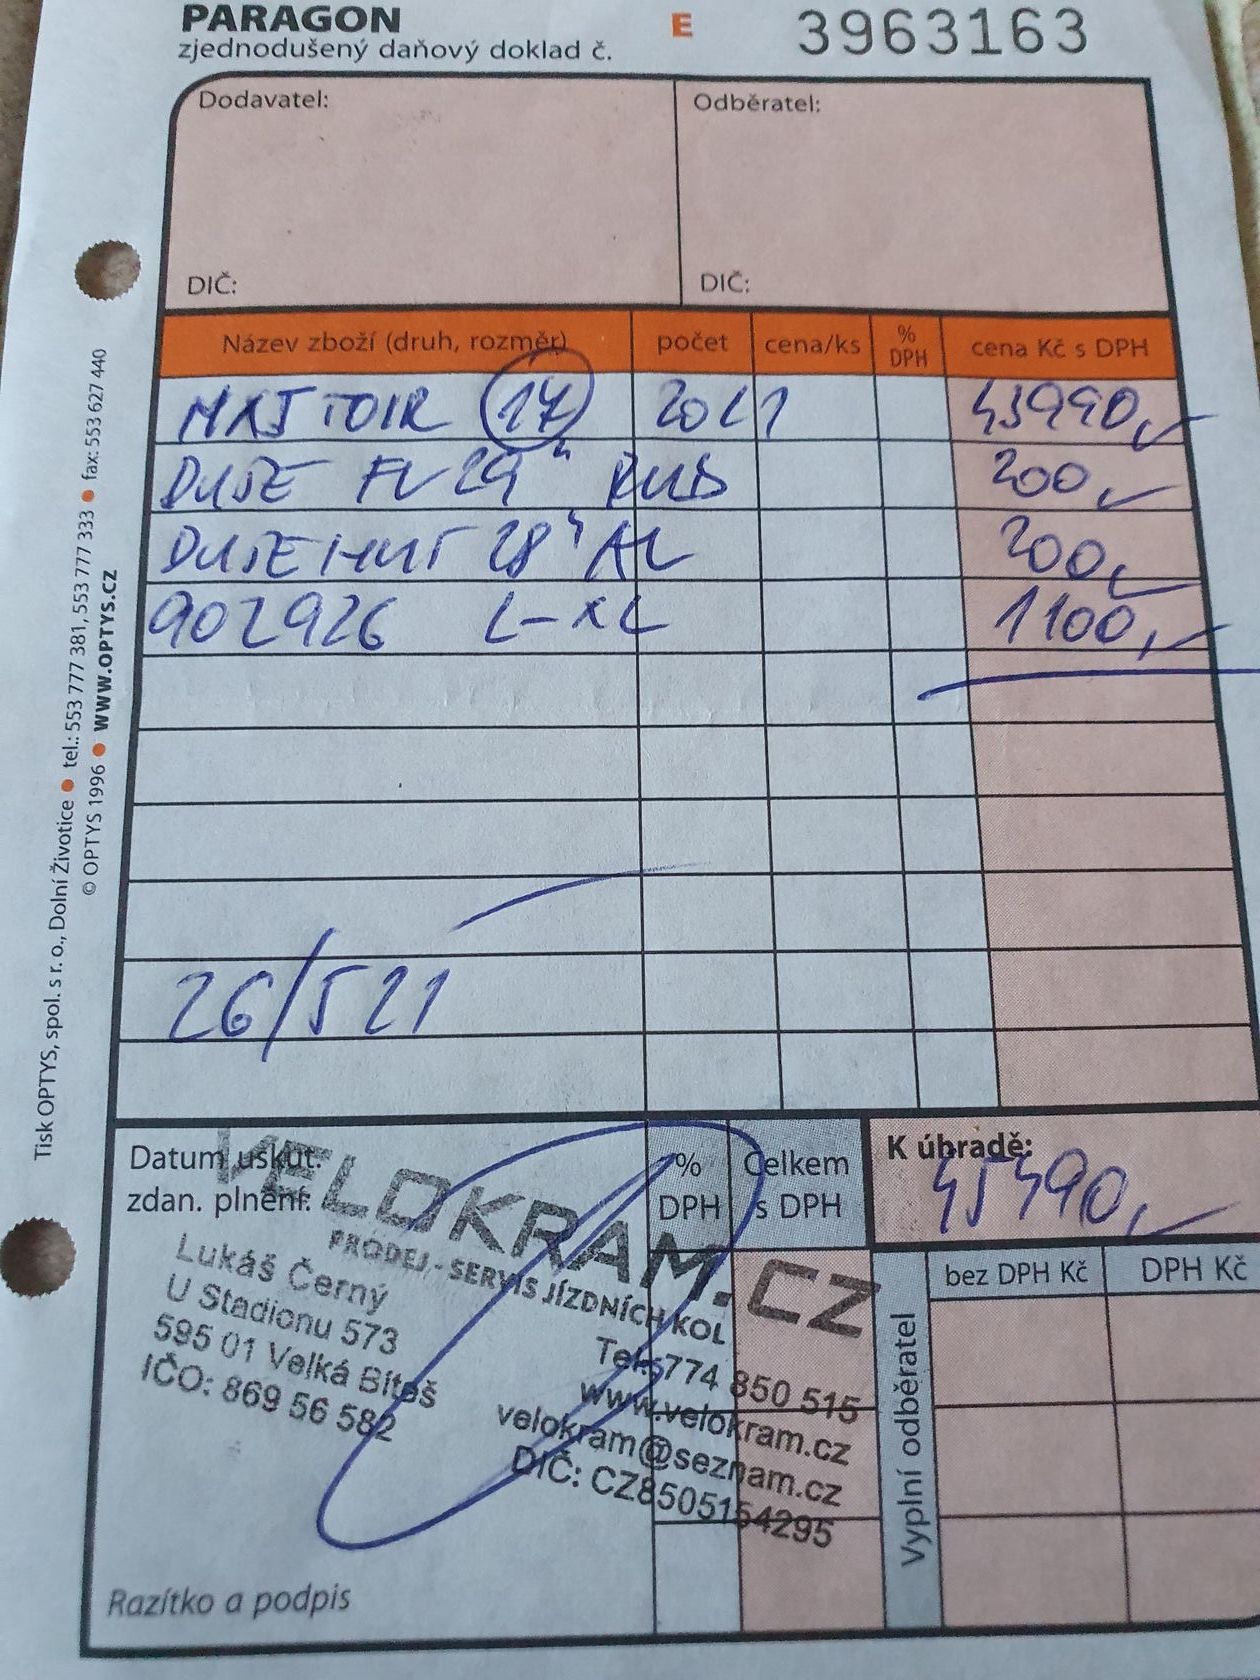 PARAGON E 3963163
zjednodušený daňový doklad č.
Dodavatel: Odběratel:
DIČ: DIČ:
Název zboží (druh, rozměr) počet cena/ks % DPH cena Kč s DPH
17 2021 43990,-
DUŠE FV 29" RUB 200,-
DUŠE 28" 200,-
902926 L-XL 1100,-
26/521
Datum uskut. zdan. plnění:
% DPH Celkem s DPH K úhradě:
45490,-
bez DPH Kč DPH Kč
Vyplní odběratel
VELOKRAM.CZ
PRODEJ - SERVIS JÍZDNÍCH KOL
Lukáš Černý
U Stadionu 573
595 01 Velká Bíteš
IČO: 869 56 582
Tel.: 774 850 515
www.velokram.cz
velokram@seznam.cz
DIČ: CZ8505154295
Razítko a podpis
Tisk OPTYS, spol. s r. o., Dolní Životice • tel.: 553 777 381, 553 777 333 • fax: 553 627 440
© OPTYS 1996 • WWW.OPTYS.CZ